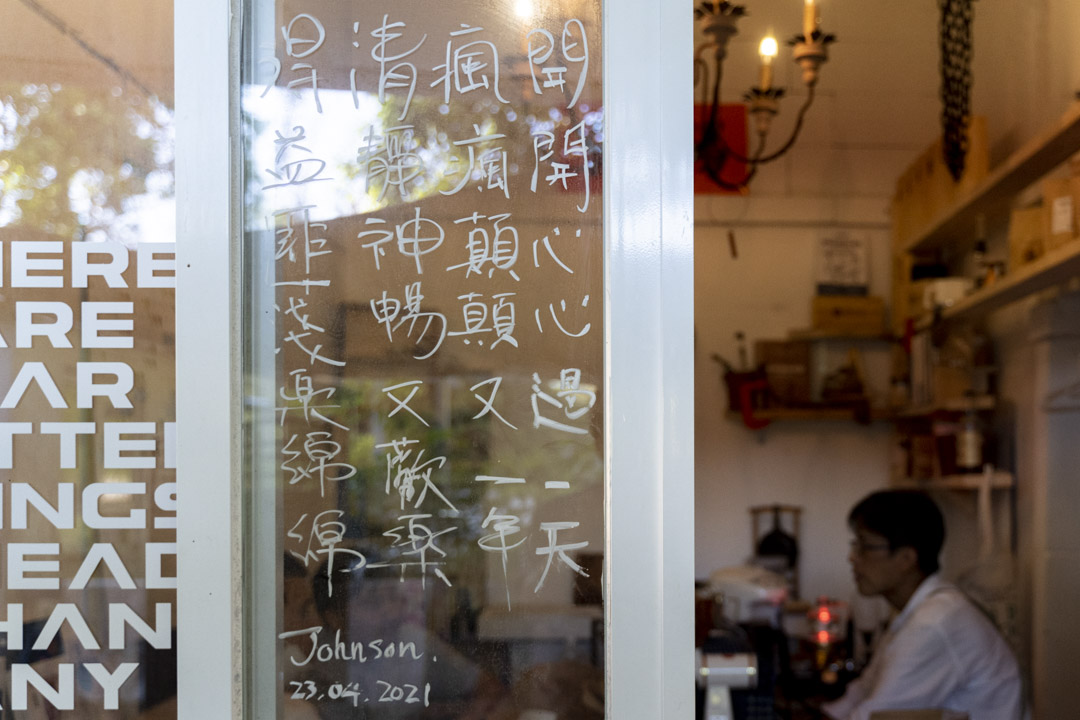 HERE
ARE
AR
TTER
INGS
EAD
HAN
ANY
開開心心過一天
瘋瘋顛顛又一年
清靜神暢又歡樂
得益匪淺樂綿綿
Johnson.
23.04.2021